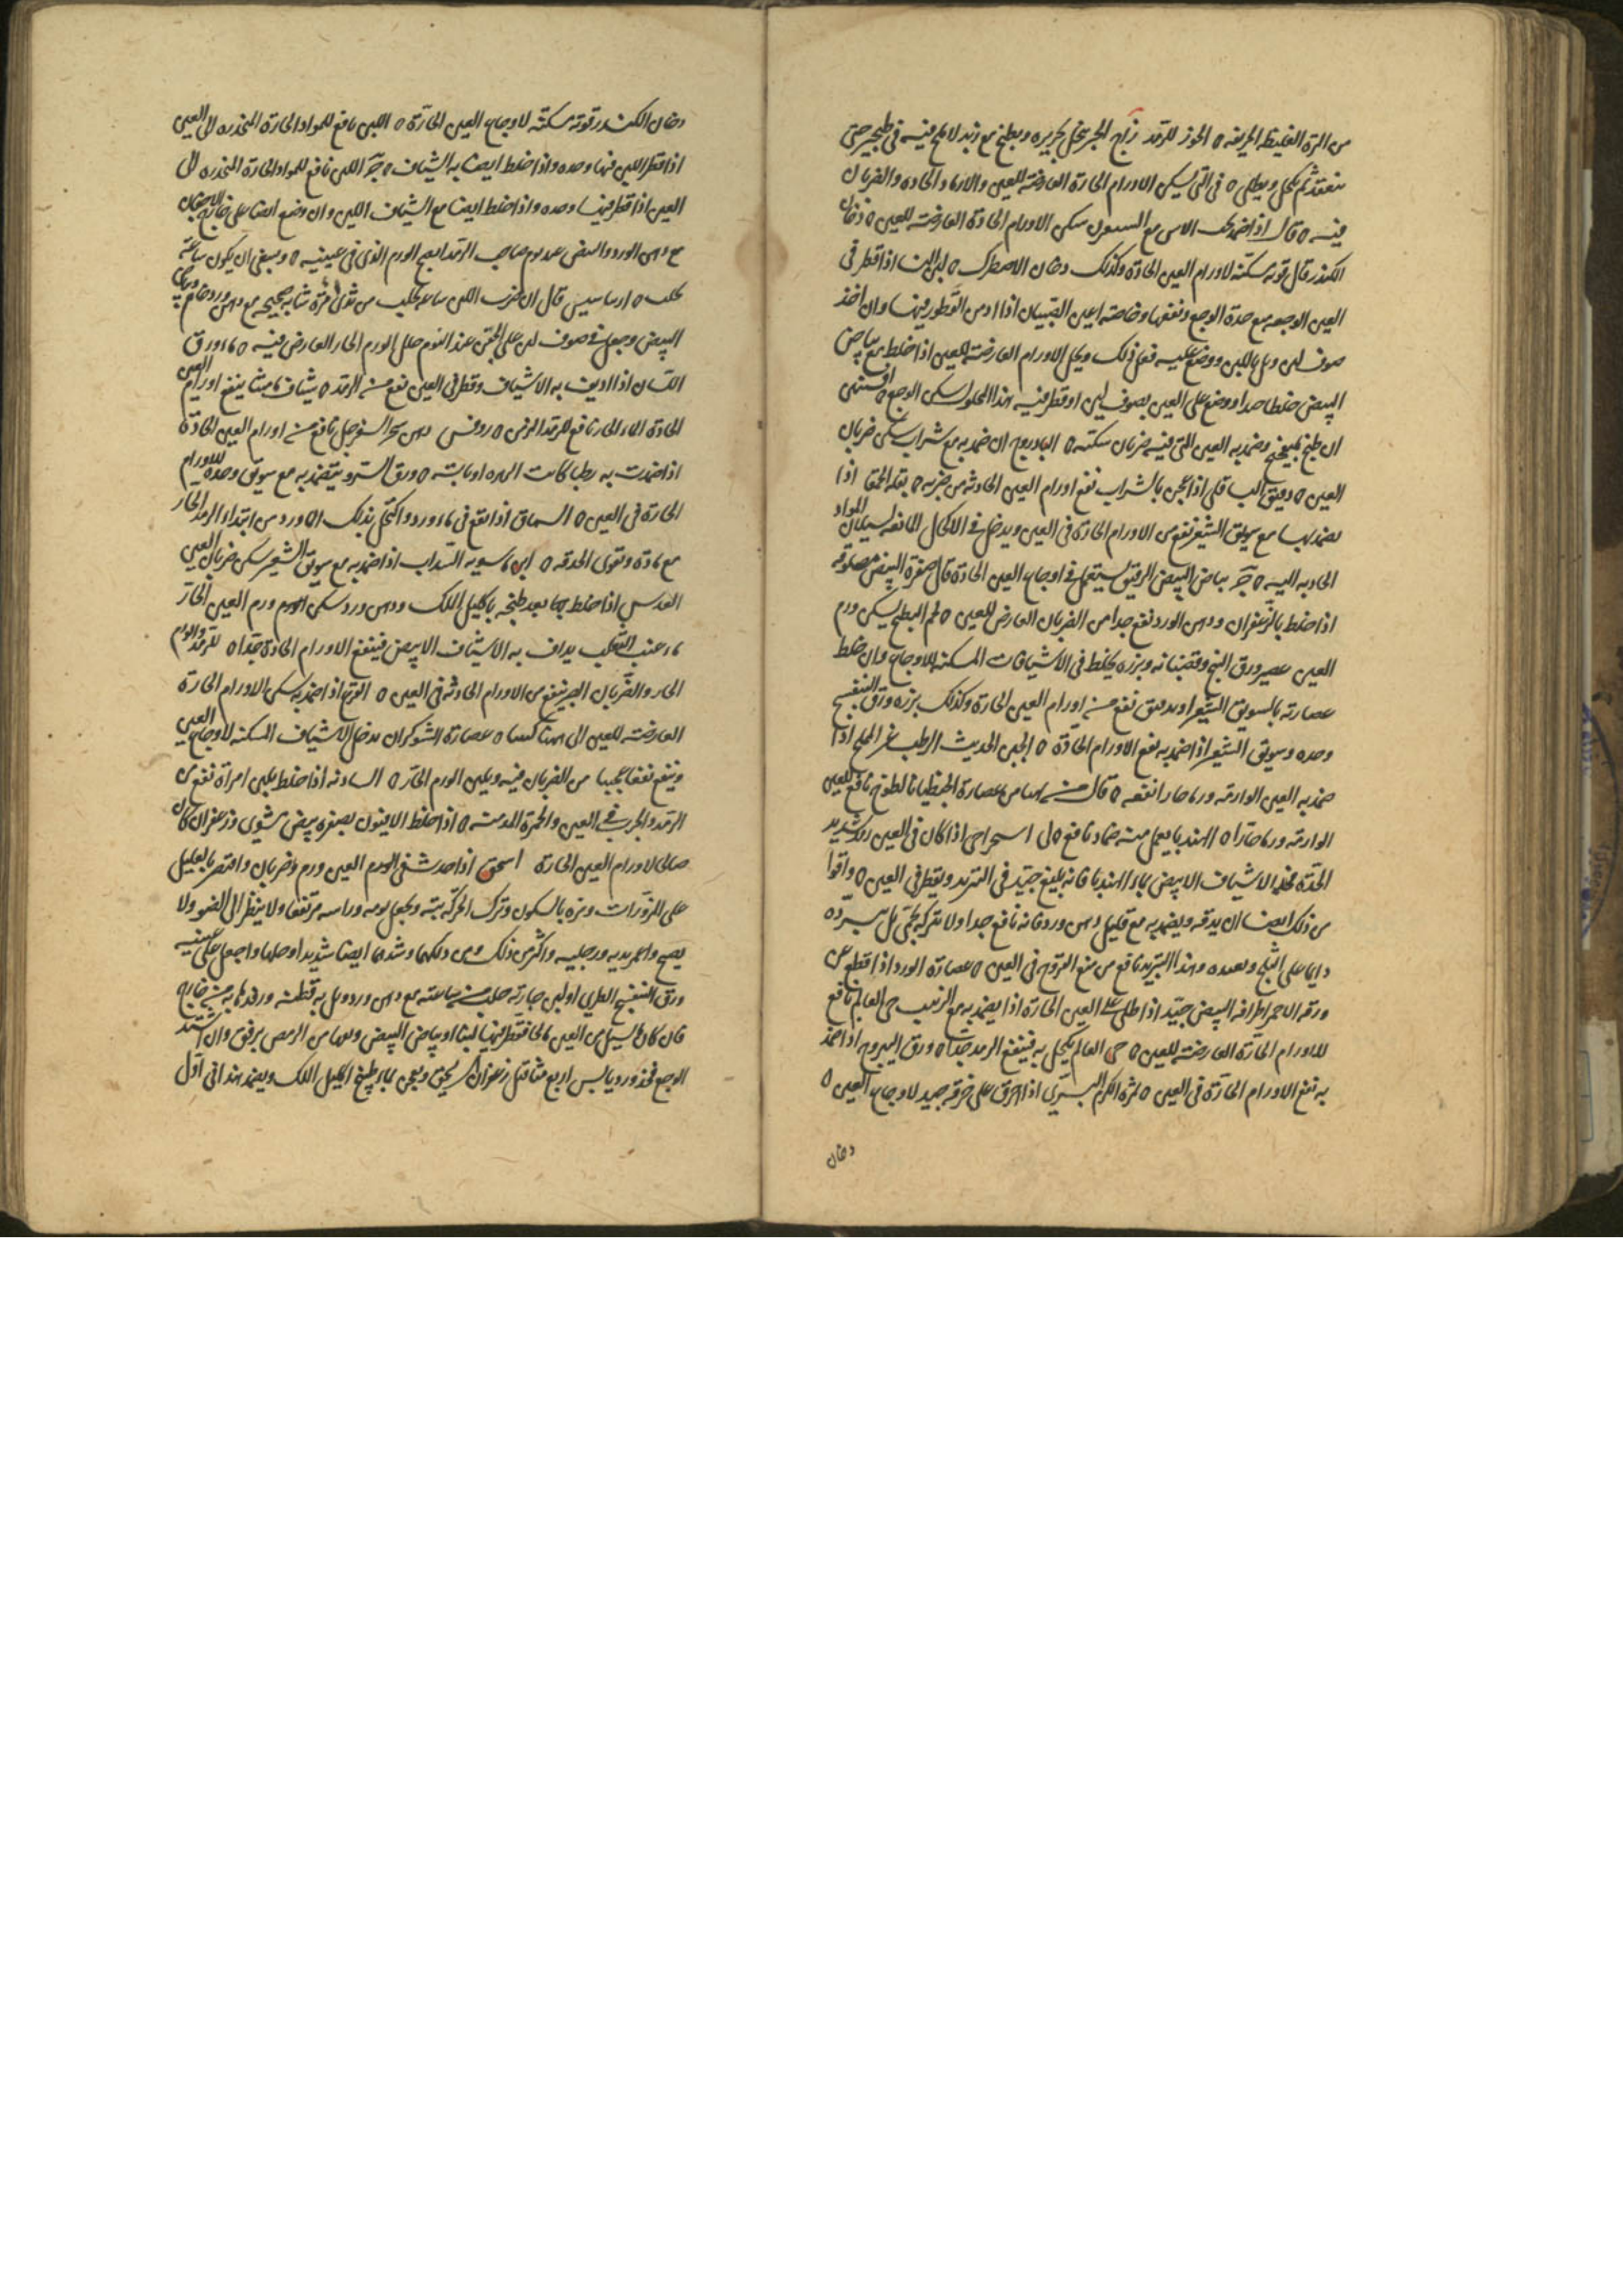 من المرة الغليظة الحريفه ه الجوز للرمد زاج الحبر ينخل بحريره ويطبخ مع زبد لا ملح فيه في طنجير حتى
ينعقد ثم يكحل ويطلى ه في التي يسكن الاورام الحارة العارضة للعين والارماد الحاده والضربان
فيه ه قال اذا ضمد الاس مع السويق سكن الاورام الحادة العارضة للعين ه دخان
الكندر قال قوته مسكنه لاورام العين الحادة وكذلك دخان الاصطرك ه لبن النسا اذا قطر في
العين الوجعه مع حدة الوجع ونفعها وخاصة اعين الصبيان اذا القطور فيها وان اخذ
صوف لين وبل باللبن ووضع عليه فعل ذلك ويحل الاورام العارضة للعين اذا خلط مع بياض
البيض خلطا جيدا ووضع على العين بصوف لين او قطر فيه هذا المحلول سكن الوجع ه افسنتين
ان طبخ بميبختج وضمد به العين التي فيها ضربان سكنه ه الباذروج ان ضمد به مع شراب سكن ضربان
العين ه دقيق الباقلى اذا عجن بالشراب نفع اورام العين الحادثه من ضربه ه بقلة الحمقا اذا
يضمد بها مع سويق الشعير نفع من الاورام الحارة في العين ويدخل في الاكحال المانعه لسيلان المواد
الحاده اليه ه ج بياض البيض الرقيق يستعمل في اوجاع العين الحادة قال صفرة البيض مصلوقه
اذا خلط بالزعفران ودهن الورد نفع جدا من الضربان العارض للعين ه لحم البطيخ يسكن ورم
العين عصير ورق البنج وقضبانه وبزره يخلط في الاشيافات المسكنه للاوجاع وان خلط
عصارته بالسويق الشعير او بدقيق نفع من اورام العين الحارة وكذلك بزره ورق البنفسج
وحده وسويق الشعير اذا ضمد به نفع الاورام الحادة ه الجبن الحديث الرطب غير المملح اذا
ضمد به العين الوارمة ورما حارا نفعه ه قال عصارة الجنطيانا لطوخ نافع للعين
الوارمة ورما حارا ه الهندبا يعمل منه ضماد نافع ه لى اذا كان في العين رمد شديد
الحدة فخذ الاشياف الابيض بماء الهندبا فانه بليغ جيد في التبريد ويقطر في العين ه واقوا
من ذلك ايضا ان يدقه ويضمد به مع قليل دهن ورد فانه نافع جدا ولا تتركه يحمى بل تبرده
دايما على الثلج وتعيده وهذا التبريد نافع من منع القروح في العين ه عصارة الورد اذا قطع من
ورقه الاحمر اطرافه البيض جيد اذا طلى على العين الحارة اذا يضمد به مع الزبيب حي العالم نافع
للاورام الحارة العارضة للعين ه حي العالم يكحل به فينفع الرمد جدا ه ورق اليبروح اذا ضمد
به نفع الاورام الحارة في العين ه ثمرة الكرم البري اذا احرق على خزفه جيد لاوجاع العين ه
دخان
دخان الكندر قوته مسكنه لاوجاع العين الحارة ه اللبن نافع للمواد الحارة المنحدره الى العين
اذا قطر اللبن فيها وحده واذا خلط ايضا به الشياف ه ج اللبن نافع للمواد الحارة المنحدره الى
العين اذا قطر فيها وحده واذا خلط ايضا مع الشياف اللين وان وضع ايضا على خارج الاجفان
مع دهن الورد والبيض عند نوم صاحب الرمد الورم الذي في عينيه ه وينبغي ان يكون ساعة
يحلب ه قال ان ضرب اللبن ساعة يحلب من ثدى امراة شابه صحيحه مع دهن ورد خام وبياض
البيض وجعل في صوف لين على الجفن عند النوم حلل الورم الحار العارض فيه ه ماء ورق
اللسان اذا اديف به الاشياف وقطر في العين نفع من الرمد ه شياف ماميثا ينفع اورام العين
الحادة الماء الحار نافع للرمد المزمن ه روفس دهن السفرجل نافع من اورام العين الحادة
اذا ضمدت به رطبا كانت او يابسة ه ورق السرو يتضمد به مع سويق وحده للاورام
الحارة في العين ه السماق اذا نقع في ماء ورد واكتحل بذلك الماورد من ابتداء الرمد الحار
مع ماده وتقوى الحدقه ه ابن ماسويه السداب اذا ضمد به مع سويق الشعير سكن ضربان العين
العدس اذا خلط بعد طبخه باكليل الملك ودهن ورد سكن ورم العين الحار
ماء عنب الثعلب يداف به الاشياف الابيض فينفع الاورام الحادة جدا ه للرمد والورم
الحار والضربان الصبر ينفع من الاورام الحادثة في العين ه القرع اذا ضمد به سكن الاورام الحارة
العارضة للعين عصارة الشوكران يدخل في الاشياف المسكنه لاوجاع العين
وينفع نفعا عجيبا من الضربان فيه ويلين الورم الحار ه الشادنه اذا خلط بلبن امراة نفع من
الرمد والجرب في العين والحمرة المزمنة ه اذا خلط الافيون بصفرة بيض مشوى وزعفران كان
صالحا لاورام العين الحارة اسحق اذا حدث في العين ورم وضربان واقتصر بالعليل
على المزورات ومره بالسكون وترك الحركة بتة ويجعل نومه وراسه مرتفعا ولا ينظر الى الضوء ولا
يصيح واغمز يديه ورجليه واكثر من ذلك ومن دلكهما وشدهما ايضا شديدا وحلها واجعل على عينيه
ورق البنفسج الطري او لبن جاريه حلب من ساعته مع دهن ورد وبل به قطنه ورفدها به من خارج
فان كان يسيل من العين ماء حار فقطر فيها لبنا او بياض البيض ونقها من الرمص برفق وان اشتد
الوجع فخذ ورد يابس اربع مثاقيل زعفران يسحق ويعجن بماء طبيخ اكليل الملك ويضمد هذا في اول